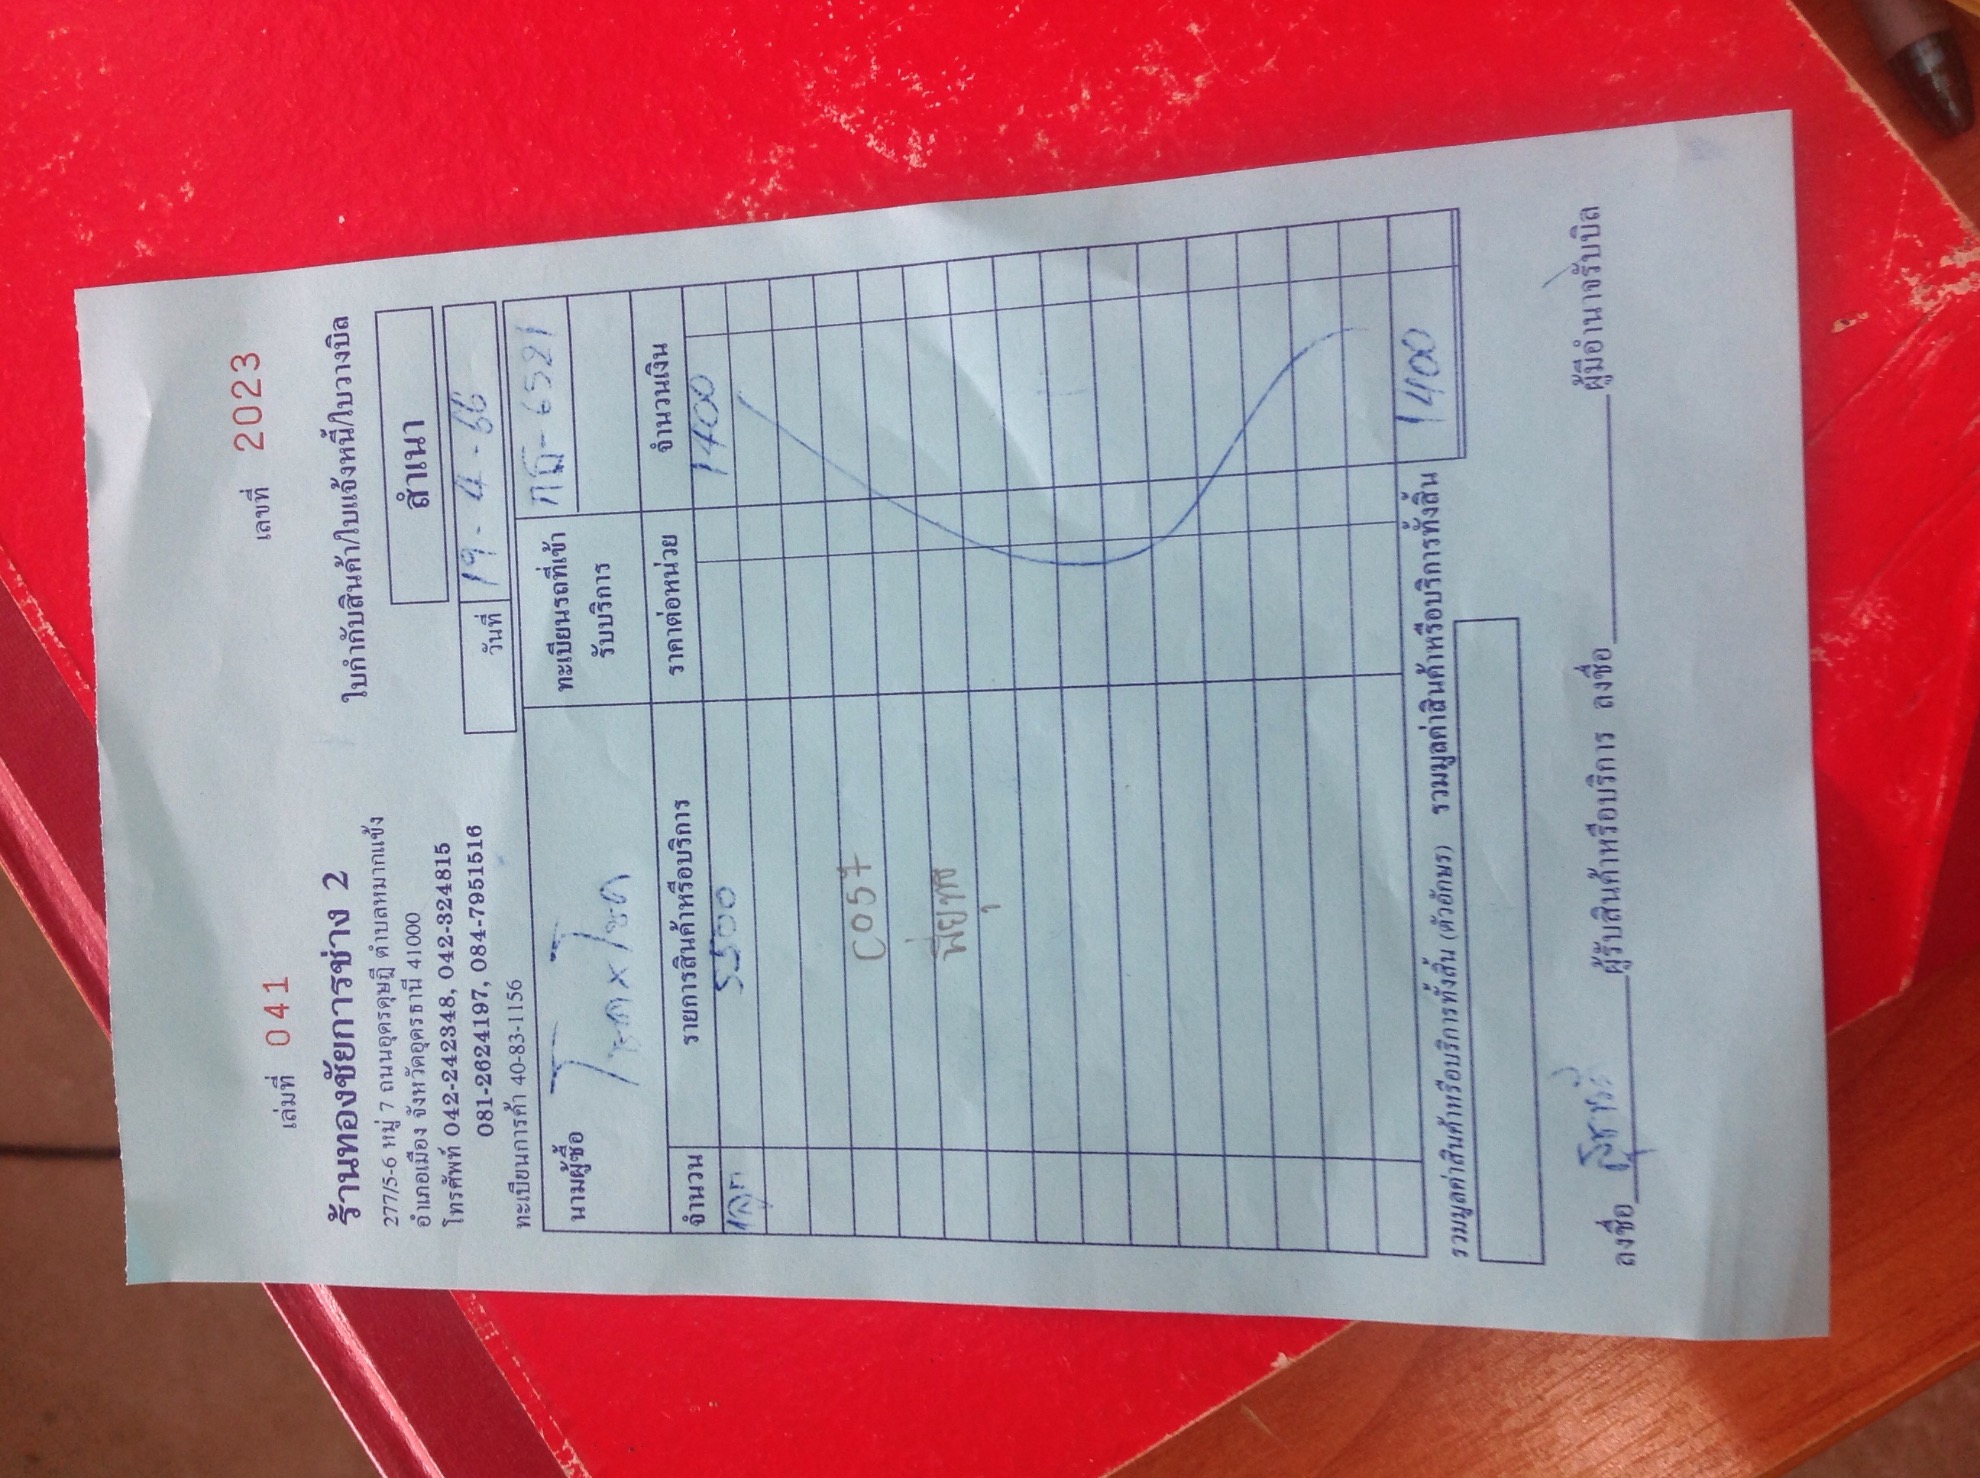 เล่มที่ 041 เลขที่ 2023
ร้านทองชัยการช่าง 2 ใบกำกับสินค้า/ใบแจ้งหนี้/ใบวางบิล
277/5-6 หมู่ 7 ถนนอุดรดุษฎี ตำบลหมากแข้ง
อำเภอเมือง จังหวัดอุดรธานี 41000
สำเนา
โทรศัพท์ 042-242348, 042-324815
081-2624197, 084-7951516
วันที่ 19-4-66
ทะเบียนการค้า 40-83-1156
นามผู้ซื้อ
ทะเบียนรถที่เข้า
รับบริการ
6521
จำนวน รายการสินค้าหรือบริการ ราคาต่อหน่วย จำนวนเงิน
5500 1400
C057
รวมมูลค่าสินค้าหรือบริการทั้งสิ้น (ตัวอักษร) รวมมูลค่าสินค้าหรือบริการทั้งสิ้น 1400
ลงชื่อ ผู้รับสินค้าหรือบริการ ลงชื่อ ผู้มีอำนาจรับบิล